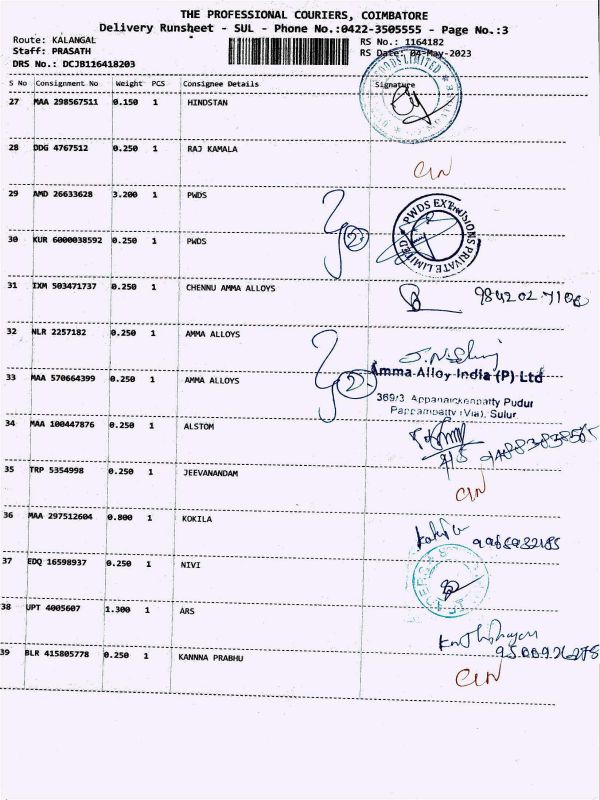 THE PROFESSIONAL COURIERS, COIMBATORE
Delivery Runsheet - SUL - Phone No.:0422-3505555 - Page No.:3
Route: KALANGAL
RS No.: 1164182
Staff: PRASATH
RS Date: 04-May-2023
DRS No.: DCJB116418203
S No Consignment No Weight PCS Consignee Details Signature
27 MAA 298567511 0.150 1 HINDSTAN
28 DDG 4767512 0.250 1 RAJ KAMALA
29 AMD 26633628 3.200 1 PWDS
PWDS EXTENSIONS PRIVATE LIMITED
30 KUR 6000038592 0.250 1 PWDS
31 IXM 503471737 0.250 1 CHENNU AMMA ALLOYS
32 NLR 2257182 0.250 1 AMMA ALLOYS
33 MAA 570664399 0.250 1 AMMA ALLOYS
Amma Alloy India (P) Ltd
369/3, Appanaickenpatty Pudur
Pappampatty (Via), Sulur
34 MAA 100447876 0.250 1 ALSTOM
35 TRP 5354998 0.250 1 JEEVANANDAM
36 MAA 297512604 0.800 1 KOKILA
37 EDQ 16598937 0.250 1 NIVI
38 UPT 4005607 1.300 1 ARS
39 BLR 415805778 0.250 1 KANNNA PRABHU